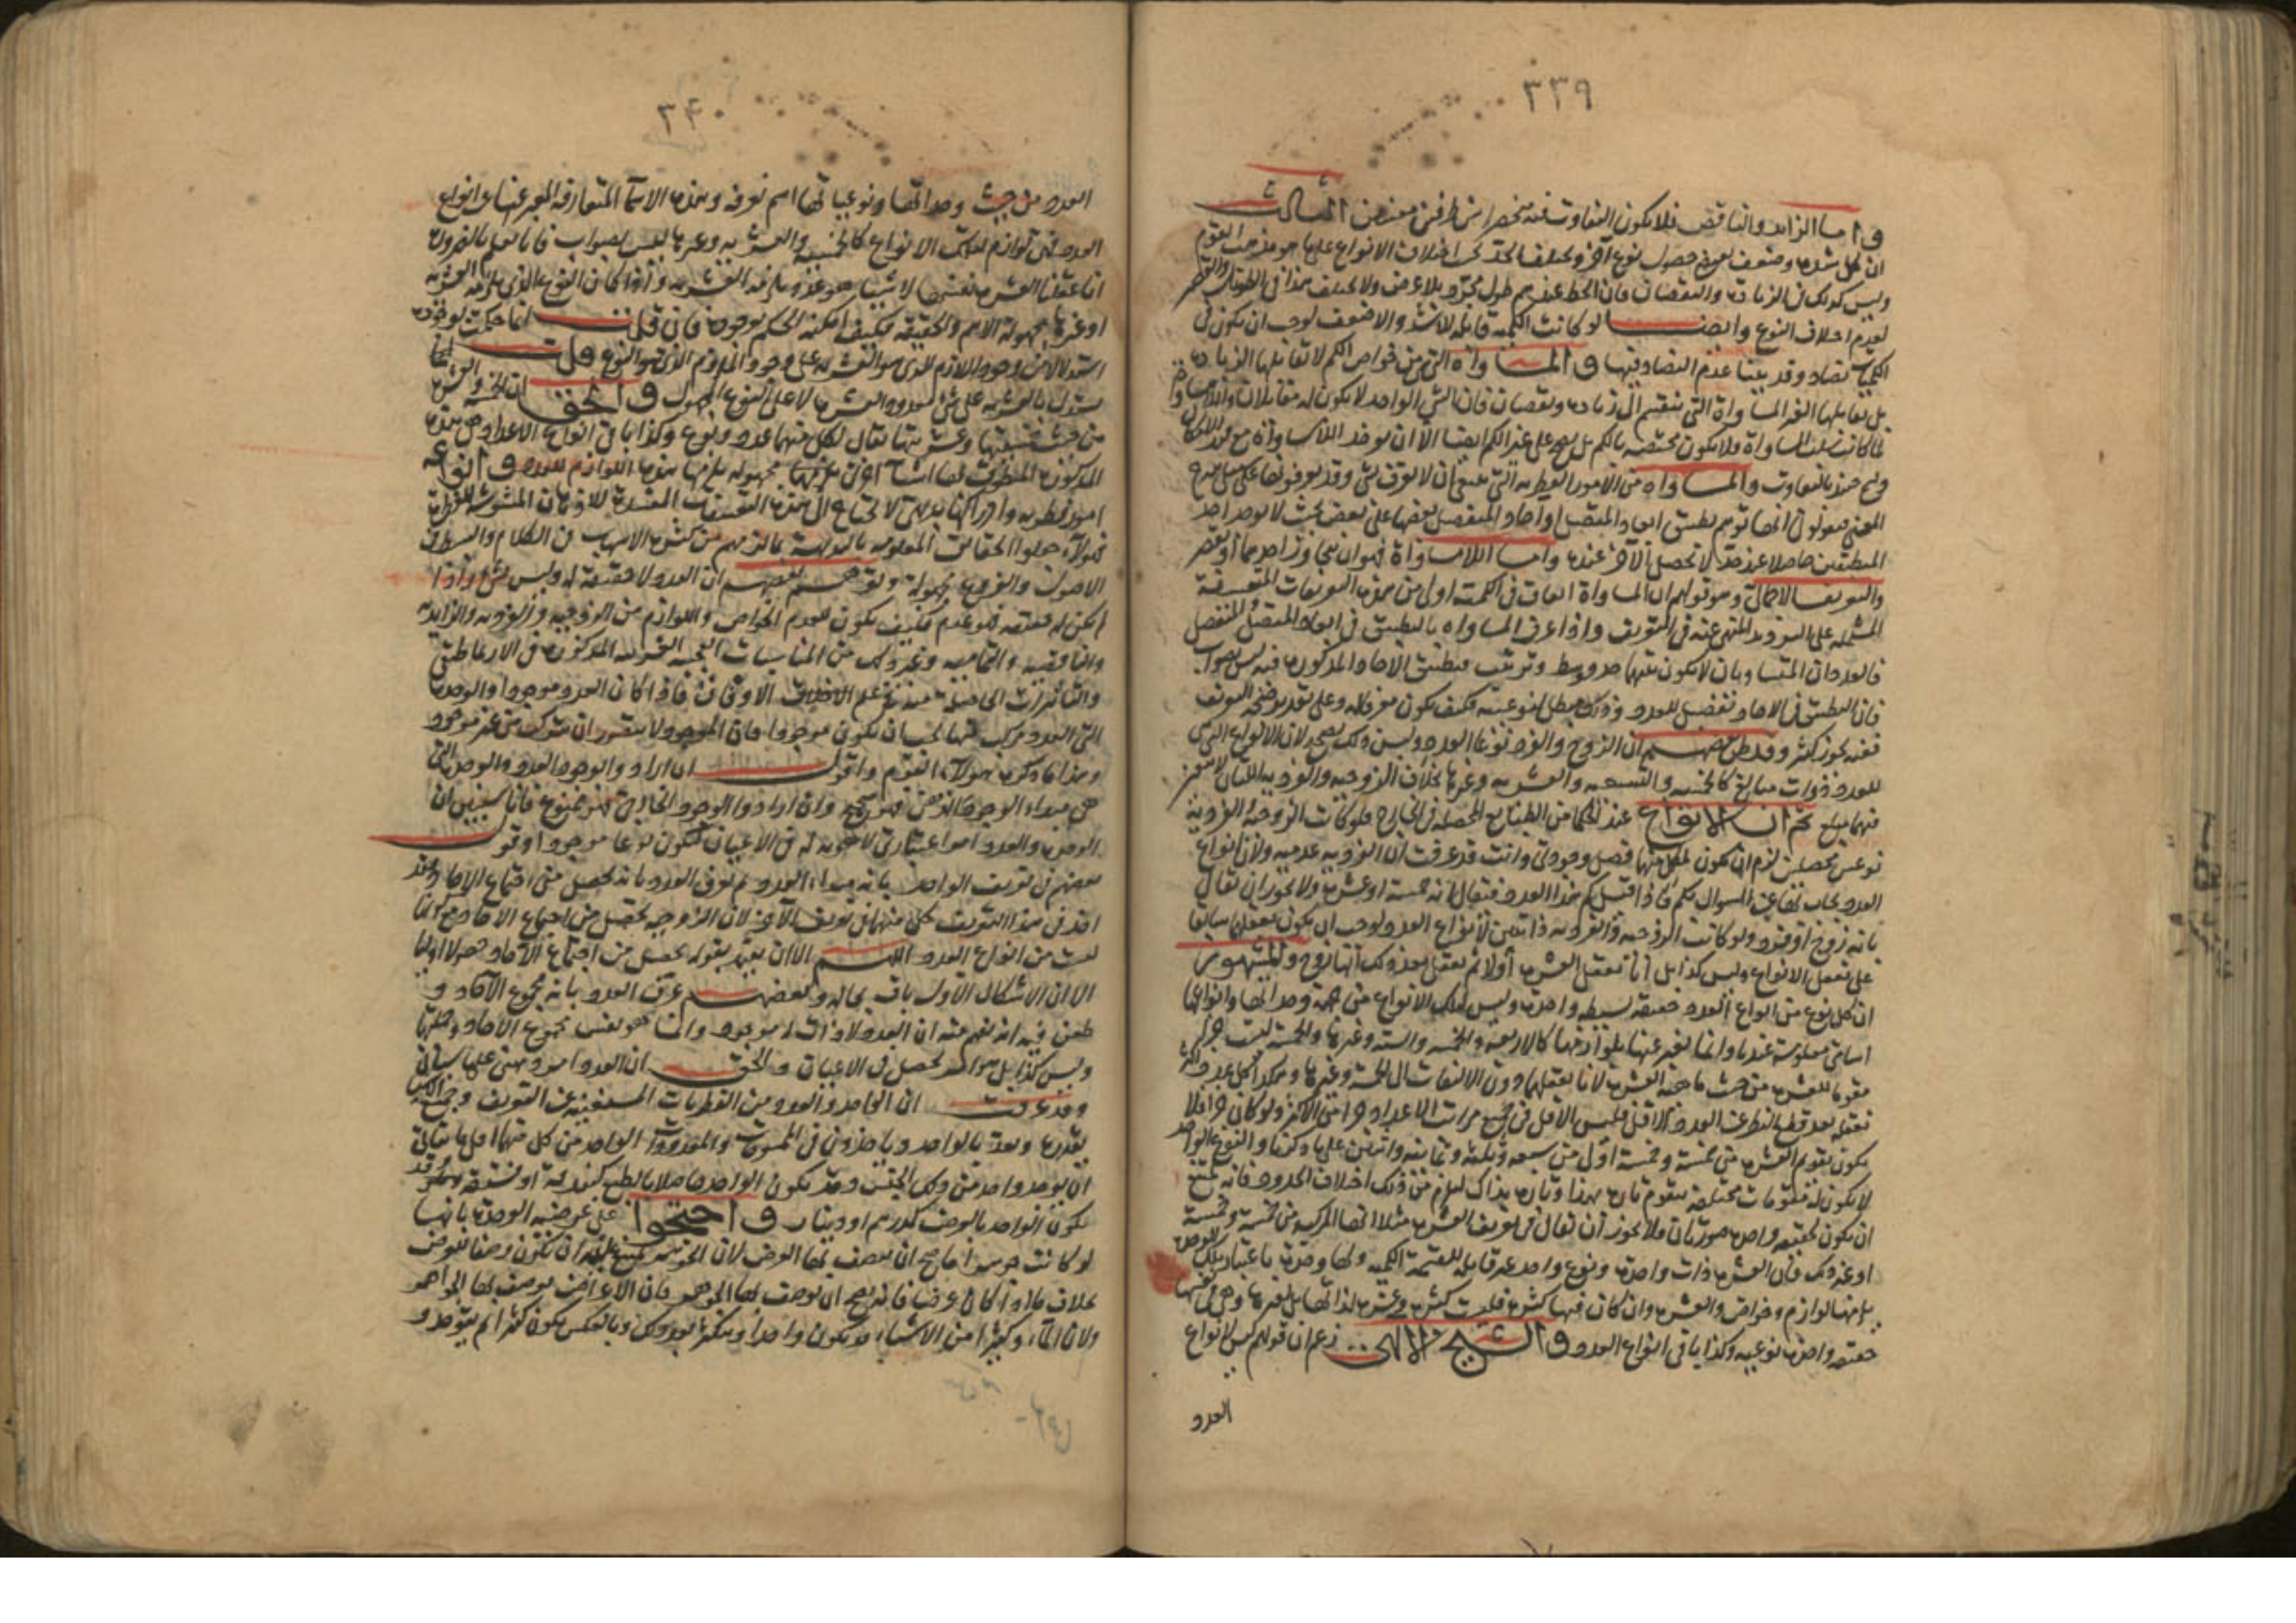 ٣٣٩
واما الزايد والناقص فلا يكون التفاوت فيه منحصرا بين طرفين معينين الثالث
ان كل شدة وضعف يعرض حصول نوع آخر ويختلف الحد كما اختلاف الانواع عليها هو مذهب القوم
وليس كذلك في الزيادة والنقصان فان الخط عندهم طول مجرد بلا عرض ولا يختلف هذا في الطويل والقصير
لعدم اختلاف النوع وايضا لو كانت الكمية قابلة للاشد والاضعف لوجب ان يكون في
الكميات تضاد وقد بينا عدم التضاد فيها والمساواة التي من خواص الكم لا تقابلها الزيادة
بل يقابلها الغير المساواة التي تنقسم الى زيادة ونقصان فان الشي الواحد لا يكون له مقابلان
لما كانت سلب المساواة فلا يكون مختصة بالكم بل يصح على غير الكم ايضا الا ان يوخذ اللامساواة مع
والمساواة من الامور الفطرية التي ينبغي ان لا تعرف بشي وقد يعرفونها
المعنى فيقولون انها توهم تطبيق ابعاد المتصل او آحاد المنفصل بعضها على بعض بحيث لا يوجد احد
المنطبقين حاصلا عند حد لا يحصل الآخر عنده واما اللامساواة فهو ان يتجاوز احدهما او يقصر
والتعريف الاجمالي وهو قولهم ان المساواة اتفاق في الكمية اولى من هذه التعريفات المتعسفة
المشتملة على الترديد المنهى عنه في التعريف واذا عرف المساواة بالتطبيق في ابعاد المتصل والمنفصل
فالعددان المتساويان لا يكون بينهما حد وسط وترتيب فتطبيق الاحاد المذكورة فيه ليس بصواب
فان التطبيق في الاحاد تفصيل للعدد وذلك مبطل لنوعيته فكيف يكون معرفا له وعلى تقدير صحة التعريف
ففيه تجوز كثير وقد ظن بعضهم ان الزوج والفرد نوعا العدد وليس ذلك بصحيح لان الانواع التي
للعدد ذوات مبالغ كالخمسية والتسعية والعشرية وغيرها بخلاف الزوجية والفردية اللتان لا يتعين
فيهما مبلغ ثم ان الانواع عند الحكما من الطبايع المحصلة في الخارج فلو كانت الزوجية والفردية
نوعين محصلين لزم ان يكون لكل منهما فصل وجودي وانت قد عرفت ان الفردية عدمية ولان انواع
العدد يجاب بها عن السوال بكم فاذا قيل كم هذا العدد فيقال انه خمسة او عشرة ولا يجوز ان يقال
بانه زوج او فرد ولو كانت الزوجية والفردية ذاتيين لانواع العدد لوجب ان يكون تعقلهما سابقا
على تعقل الانواع وليس كذا بل انا نعقل العشرة اولا ثم نعقل بعد ذلك انها زوج والمشهور
ان كل نوع من انواع العدد حقيقة بسيطة واحدة وليس لتلك الانواع من جهة وحداتها وانواعها
اسامي معلومة عندنا وانما نعبر عنها بلوازمها كالاربعية والخمسية والستة وغيرها والخمسة ليست جزءا
مقوما للعشرة من حيث ماهية العشرة لانا نعقلها دون الالتفات الى الخمسة وغيرها وهكذا كل عدد
نعقله بعد قطع النظر عن العدد الاقل فليس الاقل في جميع مراتب الاعداد جزءا من الاكثر ولو كان جزءا فلا
يكون تقوم العشرة من خمسة وخمسة اولى من سبعة وثلثة وثمانية واثنين على ما ذكرنا والنوع الواحد
لا يكون له مقومات مختلفة يتقوم تارة بهذا وتارة بذاك للزم من ذلك اختلاف الحدود فانه يمتنع
ان يكون لحقيقة واحدة صورتان ولا يجوز ان يقال في تعريف العشرة مثلا انها المركبة من خمسة وخمسة
او غير ذلك فان العشرة ذات واحدة ونوع واحد غير قابلة للقسمة الكمية ولها وحدة باعتبار تلك الوحدة
يلزمها لوازم وخواص والعشرة وان كان فيها كثرة فليست كثرة وعشرة لذاتها بل لغيرها وهي في نفسها
حقيقة واحدة نوعية وكذا باقي انواع العدد والشيخ الالهي زعم ان قولهم ليس لانواع
العدد
٣٤٠
العدد من حيث وحداتها ونوعياتها اسم نعرفه وهذه الاسما المتعارفة المعبر عنها عن انواع
العدد هي لوازم لتلك الانواع كالخمسية والعشرية وغيرها ليس بصواب فانا نعلم بالضرورة
انا عقلنا العشرة نفسها لا شيئا هو غيره يلزمه العشرية واذا كان النوع الذي يلزمه العشرية
او غيرها مجهولة الاسم والحقيقة فكيف امكنه الحكم بوجوده فان قلت انما حكمت بوجوده
استدلالا من وجود اللازم الذي هو العشرية على وجود الملزوم الذي هو النوع قلت انما
يستدل بالعشرية على شي معدود بالعشرة لا على النوع المجهول والحق ان الخمسة والعشرة
من حيث خمسيتها وعشريتها يقال لكل منهما عدد ونوع وكذا باقي انواع الاعداد وهل هذه
المذكورة المنظورة لها اشيآ اخرى غيرها مجهولة يلزمها هذه اللوازم للعدد وانواعه
امور فطرية وادراكها بديهي لا يحتاج الى هذه التعسفات المفسدة للاذهان المشوشة للفطرة
فهولآء جعلوا الحقايق المعلومة بالبديهة بالزامهم من كثرة الاسهاب في الكلام والبسط في
الاصول والفروع مجهولة وتوهم بعضهم ان العدد لا حقيقة له وليس بشي واذا
لم يكن له حقيقة فهو عدم فكيف يكون للعدم الخواص واللوازم من الزوجية والفردية والزايدية
والناقصية والتمامية وغير ذلك من المناسبات العجيبة الغريبة المذكورة في الارثماطيقي
والتاثيرات الحاصلة منه في علم الاوفاق فاذا كان العدد موجودا والوحدة
التي العدد مركب منها يجب ان يكون موجودا فان الموجود لا يتصور ان يتركب من غير موجود
وهذا ما ذكره هولآء القوم واقول ان ارادوا بوجود العدد والوحدة التي
هي مبداء الوجود الذهني فهو صحيح وان ارادوا الوجود الخارجي فهو ممنوع فانا سنبين ان
الوحدة والعدد امور اعتبارية لا هوية له في الاعيان فتكون نوعا موجودا وقول
بعضهم في تعريف الواحد بانه مبداء العدد ثم يعرف العدد بانه يحصل من اجتماع الاحاد فقد
اخذ في هذا التعريف كل منهما في تعريف الآخر لان الزوجية تحصل من اجتماع الاحاد مع انها
ليست من انواع العدد اللهم الا ان يقيد بقوله يحصل من اجتماع الآحاد حصولا اوليا
الا ان الاشكال الاول باق بحاله وبعضهم عرف العدد بانه مجموع الآحاد و
طعن فيه انه يفهم منه ان العدد له ذات موجود وانما هو نفس مجموع الاحاد وجملتها
وليس كذا بل هو امر يحصل في الاعيان والحق ان العدد امر ذهني على ما سياتي
وقد عرفت ان الواحد والعدد من الفطريات المستغنية عن التعريف وجميع الكميات
يقدرها ويعدها بالواحد وياخذون في الممسوحات والمعدودات الواحد من كل منهما على ما يتأتى
ان يوجد واحد من ذلك الجنس وقد يكون الواحد حاصلا بالطبع كبندقة او فستقة وقد
يكون الواحد بالوضع كدرهم او دينار واحتجوا على عرضية الوحدة بانها
لو كانت جوهرا ما صح ان يتصف بها العرض لان الجوهر يمتنع عليه ان يكون وصفا للعرض
بخلاف ما اذا كان عرضا فانه يصح ان يوصف بها الجوهر فان الاعراض يوصف بها الجواهر
ولان المآء وكثيرا من الاشياء قد يكون واحدا ويتكثر بعد ذلك وبالعكس يكون كثيرا ثم يتوحد و